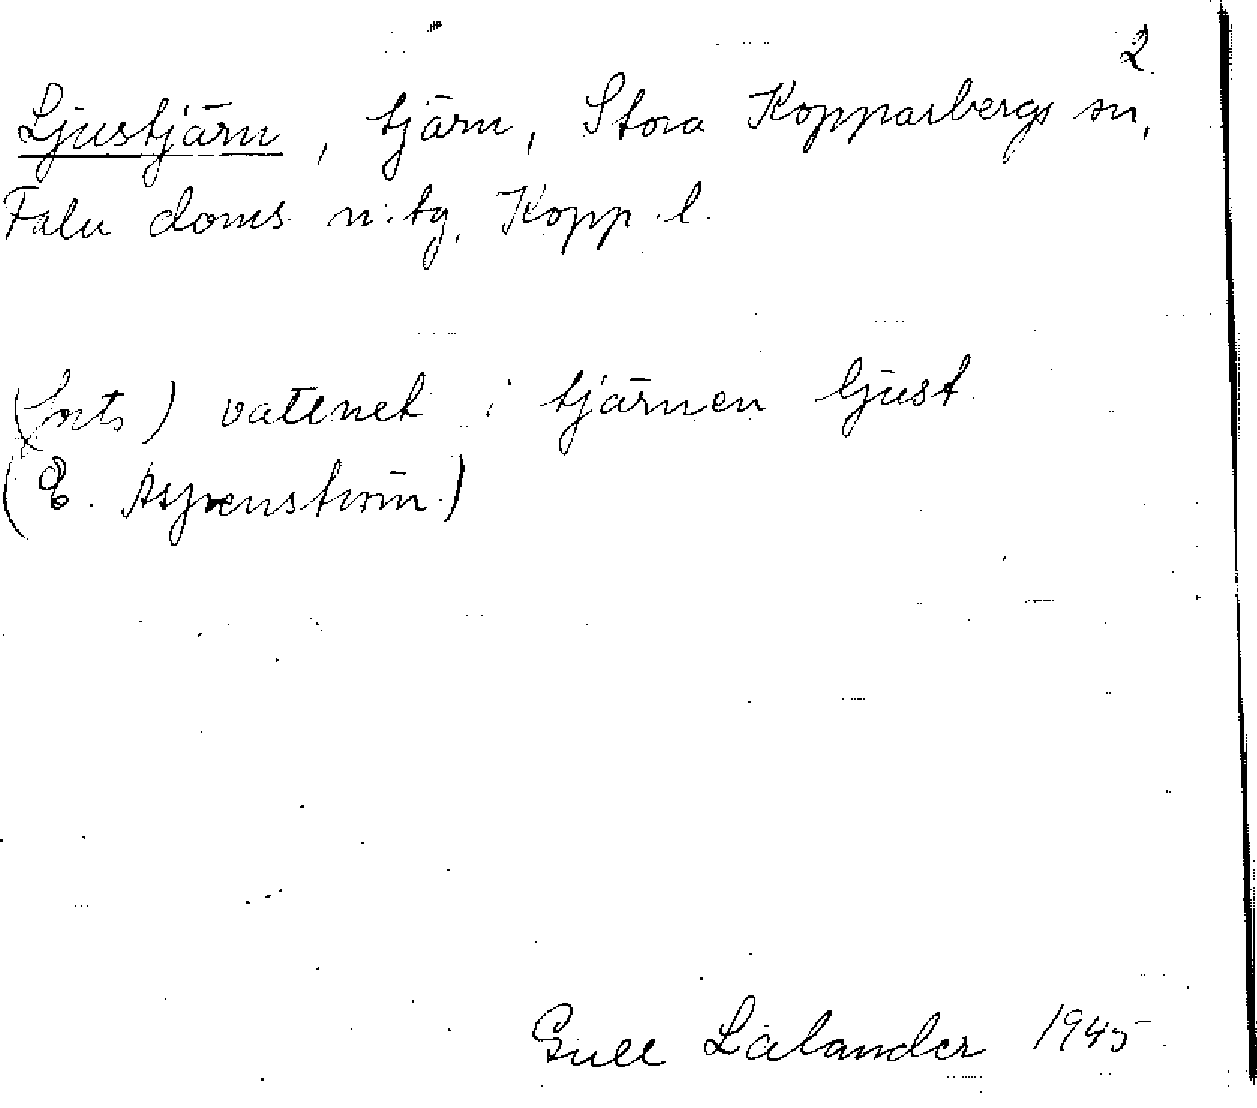 2.
Ljustjärn, tjärn, Stora Kopparbergs sn,
Falu doms. n:tg, Kopp. l.
(forts) vattnet i tjärnen ljust.
(E. Aspenström.)
Gull Lålander 1945